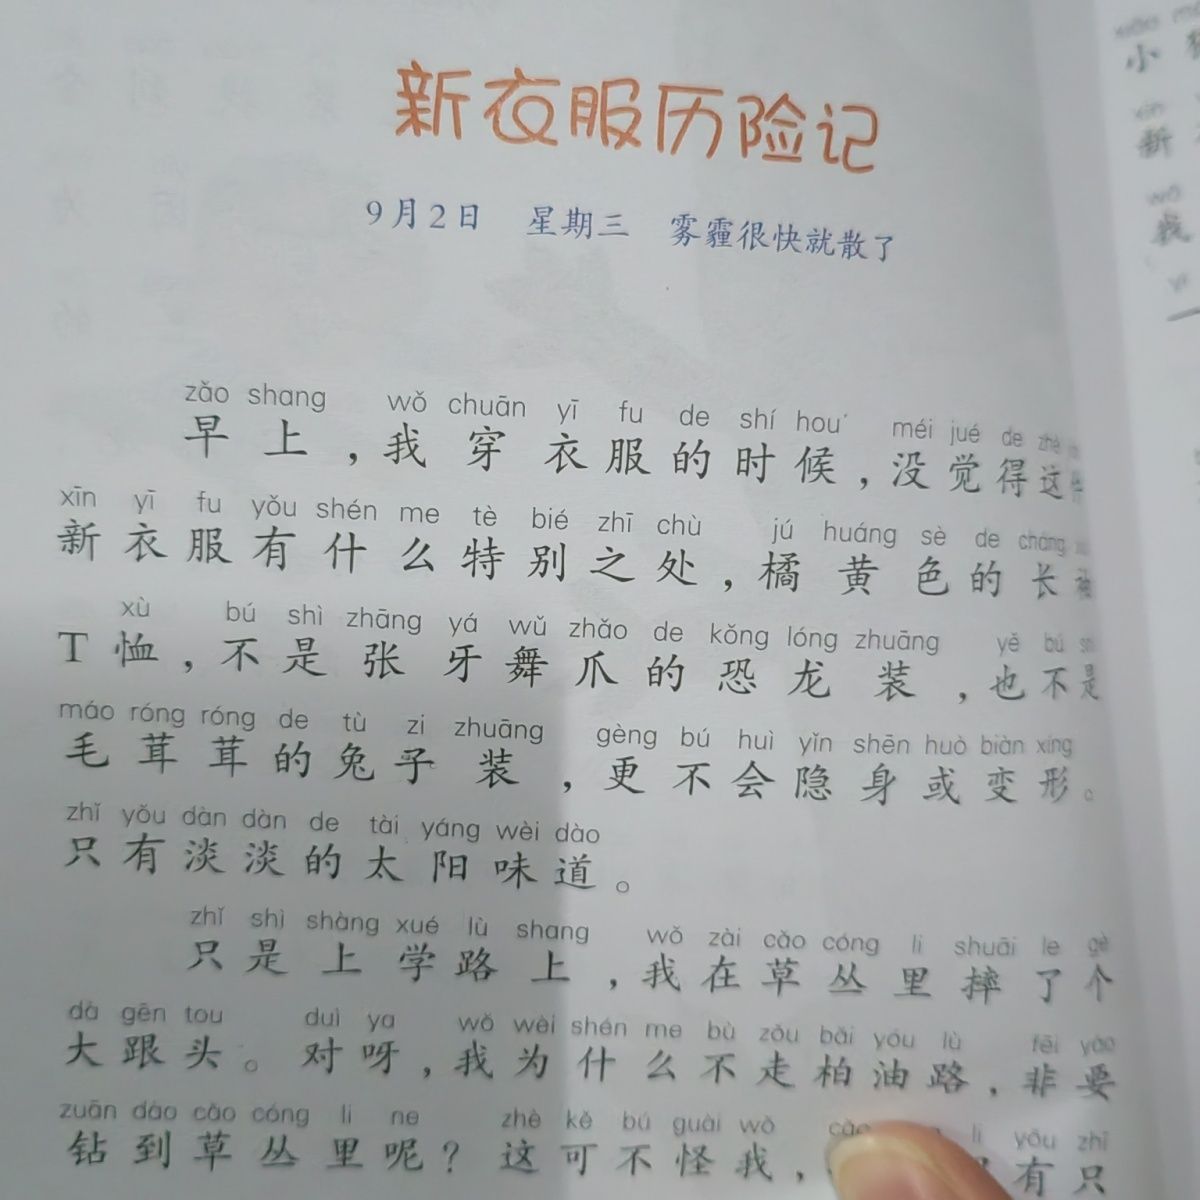 新衣服历险记
9月2日 星期三 雾霾很快就散了
zǎo shang wǒ chuān yī fu de shí hou méi jué de zhè
早上，我穿衣服的时候，没觉得这件
xīn yī fu yǒu shén me tè bié zhī chù jú huáng sè de cháng xiù
新衣服有什么特别之处，橘黄色的长袖
xù bú shì zhāng yá wǔ zhǎo de kǒng lóng zhuāng yě bú shì
T恤，不是张牙舞爪的恐龙装，也不是
máo róng róng de tù zi zhuāng gèng bú huì yǐn shēn huò biàn xíng
毛茸茸的兔子装，更不会隐身或变形。
zhǐ yǒu dàn dàn de tài yáng wèi dào
只有淡淡的太阳味道。
zhǐ shì shàng xué lù shang wǒ zài cǎo cóng li shuāi le gè
只是上学路上，我在草丛里摔了个
dà gēn tou duì ya wǒ wèi shén me bù zǒu bǎi yóu lù fēi yào
大跟头。对呀，我为什么不走柏油路，非要
zuān dào cǎo cóng li ne zhè kě bú guài wǒ cǎo li yǒu zhī
钻到草丛里呢？这可不怪我，有只
xiǎo
小
xīn
新
wǒ
我